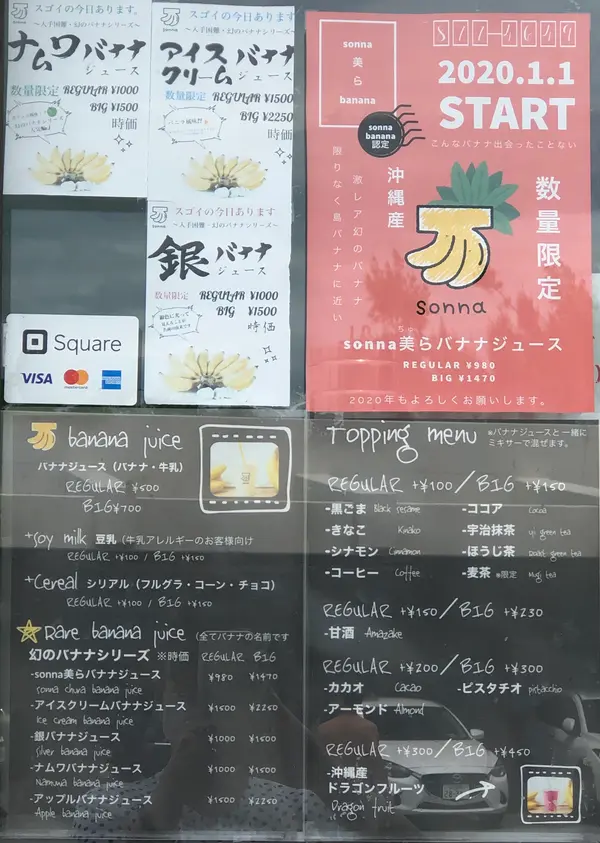 スゴイの今日あります
〜入手困難・幻のバナナシリーズ〜
ナムワバナナ
ジュース
数量限定 REGULAR ¥1000
BIG ¥1500
時価
スゴイの今日あります
〜入手困難・幻のバナナシリーズ〜
アイス
クリーム
バナナ
ジュース
数量限定 REGULAR ¥1500
BIG ¥2250
時価
スゴイの今日あります
〜入手困難・幻のバナナシリーズ〜
銀バナナ
ジュース
数量限定 REGULAR ¥1000
BIG ¥1500
時価
Square
VISA mastercard
sonna
美
ら
banana
2020.1.1
START
こんなバナナ出会ったことない
sonna
banana
認定
沖縄産
激レア幻のバナナ
限りなく島バナナに近い
数量限定
sonna
ちゅ
sonna美らバナナジュース
REGULAR ¥980
BIG ¥1470
2020年もよろしくお願いします。
banana juice
バナナジュース（バナナ・牛乳）
REGULAR ¥500
BIG ¥700
+Soy milk 豆乳（牛乳アレルギーのお客様向け
REGULAR +¥100 / BIG +¥150
+Cereal シリアル（フルグラ・コーン・チョコ）
REGULAR +¥100 / BIG +¥150
Rare banana juice （全てバナナの名前です
幻のバナナシリーズ ※時価 REGULAR BIG
-sonna美らバナナジュース ¥980 ¥1470
sonna chura banana juice
-アイスクリームバナナジュース ¥1500 ¥2250
Ice cream banana juice
-銀バナナジュース ¥1000 ¥1500
Silver banana juice
-ナムワバナナジュース ¥1000 ¥1500
Namuwa banana juice
-アップルバナナジュース ¥1500 ¥2250
Apple banana juice
Topping menu ※バナナジュースと一緒に
ミキサーで混ぜます。
REGULAR +¥100 / BIG +¥150
-黒ごま Black sesame -ココア Cocoa
-きなこ Kinako -宇治抹茶 Uji green tea
-シナモン Cinnamon -ほうじ茶 Roast green tea
-コーヒー Coffee -麦茶 ※限定 Mugi tea
REGULAR +¥150 / BIG +¥230
-甘酒 Amazake
REGULAR +¥200 / BIG +¥300
-カカオ Cacao -ピスタチオ pistachio
-アーモンド Almond
REGULAR +¥300 / BIG +¥450
-沖縄産
ドラゴンフルーツ
Dragon fruit